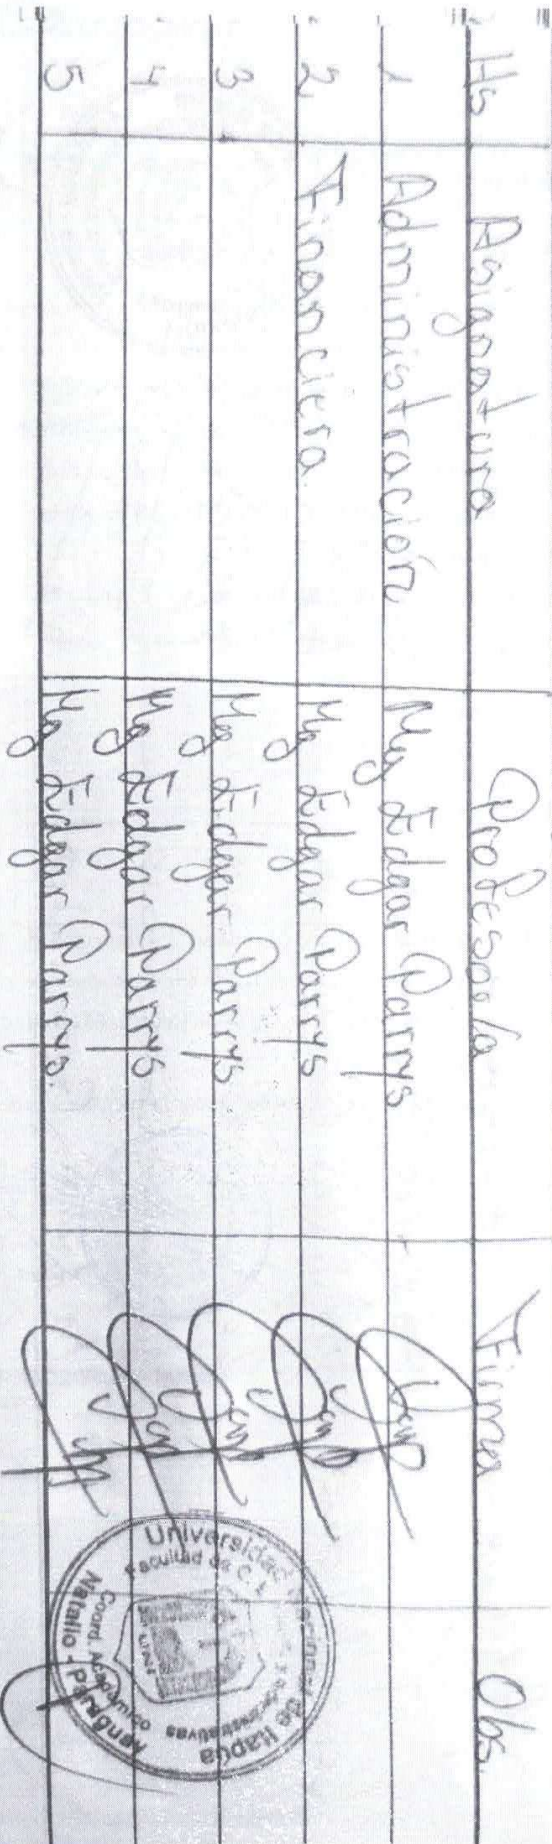 Hs Asignatura Profesor/a Firma Obs.
1 Administración Mg Edgar Parrys
2 Financiera. Mg Edgar Parrys
3 Mg Edgar Parrys
4 Mg Edgar Parrys
5 Mg Edgar Parrys.
Universidad Nacional de Itapúa
Facultad de C. E. y Administrativas
Coord. Académico
Natalio - Paraguay